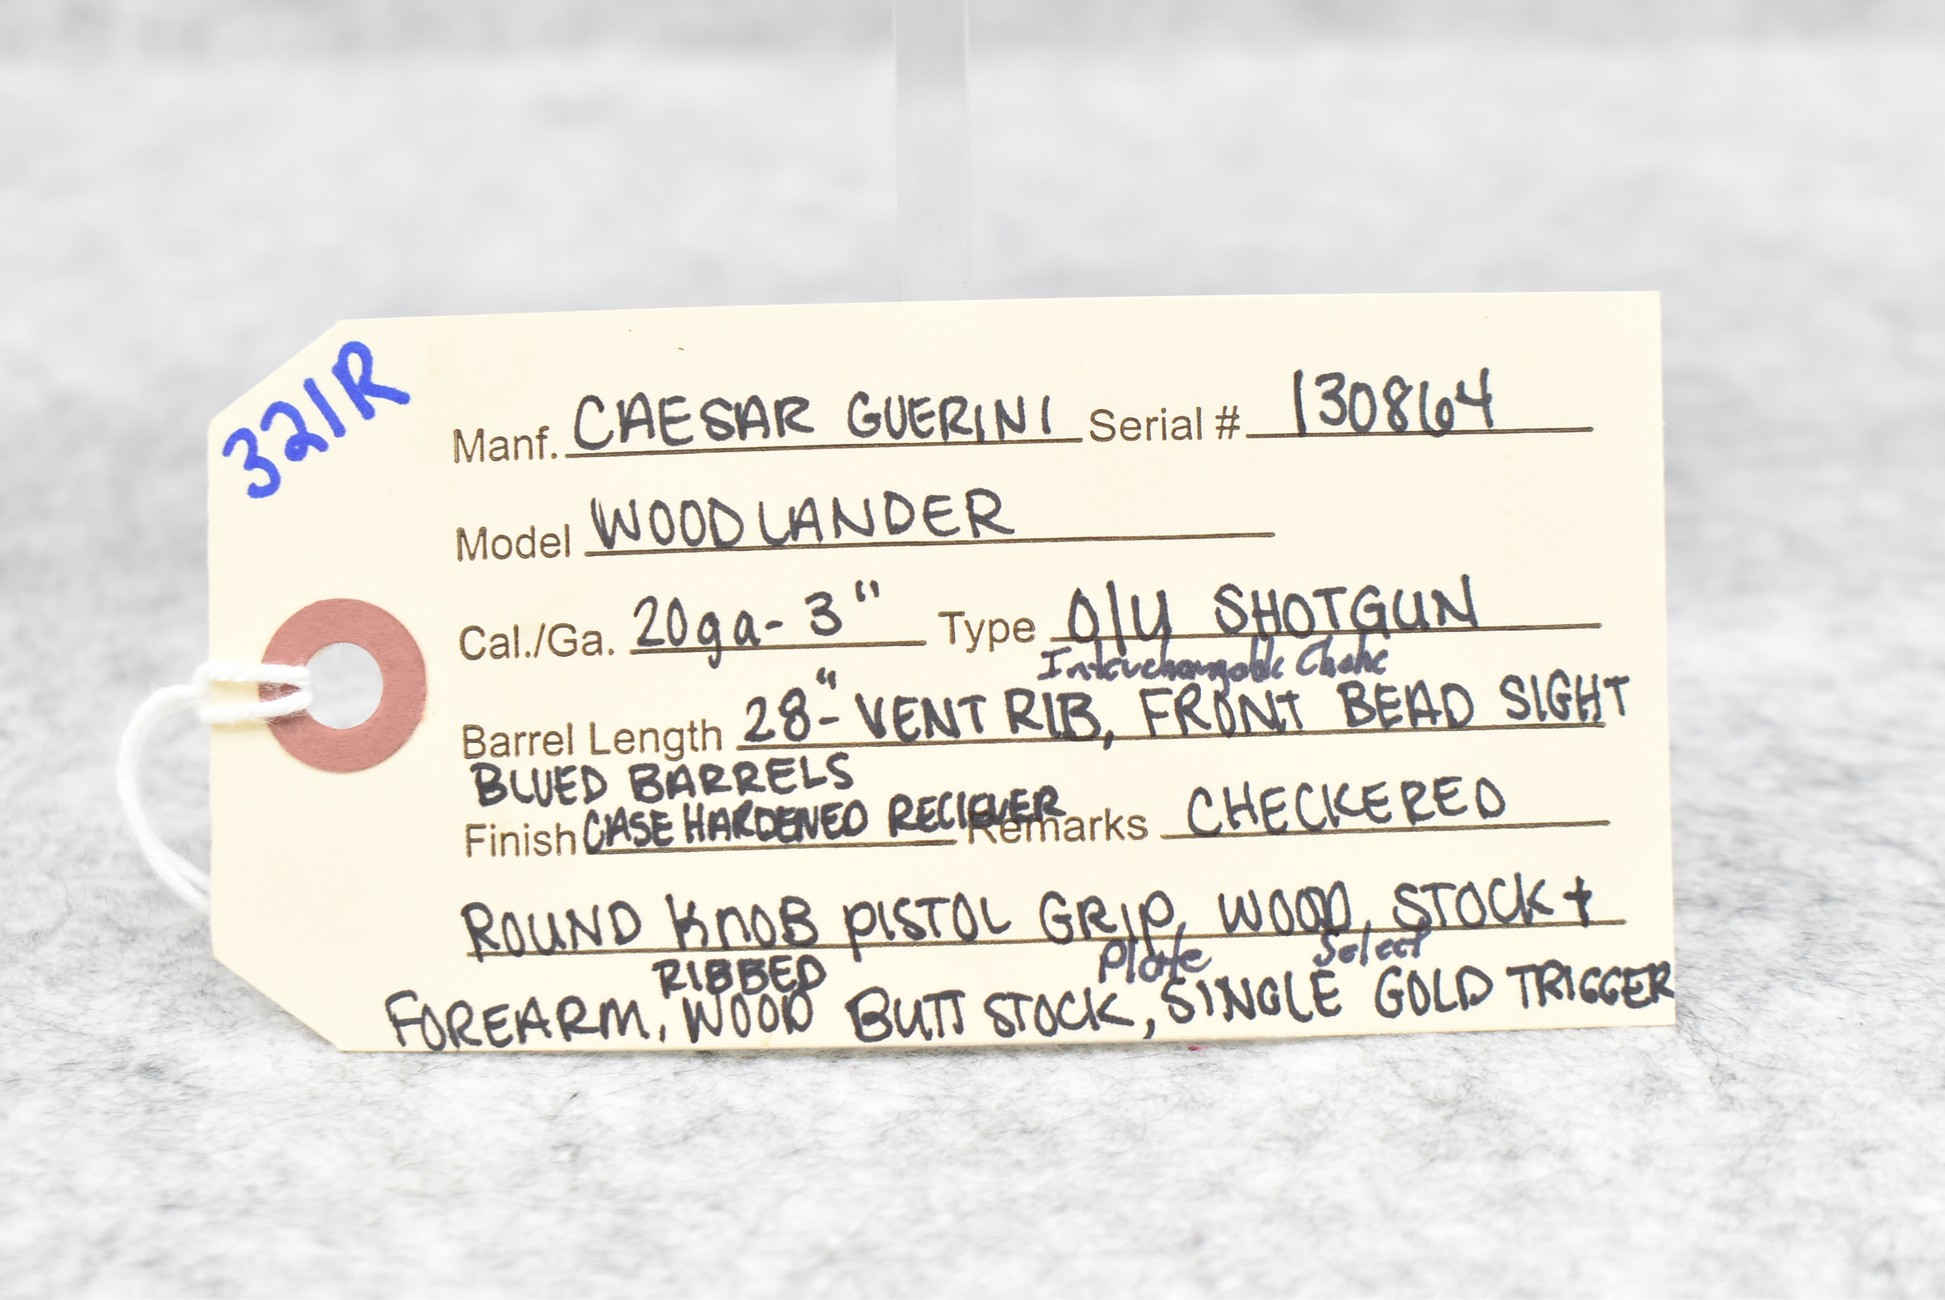 321R
Manf. CAESAR GUERINI Serial # 130864
Model WOODLANDER
Cal./Ga. 20ga- 3" Type O/U SHOTGUN
Interchangable Choke
Barrel Length 28"- VENT RIB, FRONT BEAD SIGHT
BLUED BARRELS
Finish CASE HARDENED RECIEVER Remarks CHECKERED
ROUND KNOB PISTOL GRIP, WOOD, STOCK +
RIBBED Plate Select
FOREARM, WOOD BUTT STOCK, SINGLE GOLD TRIGGER